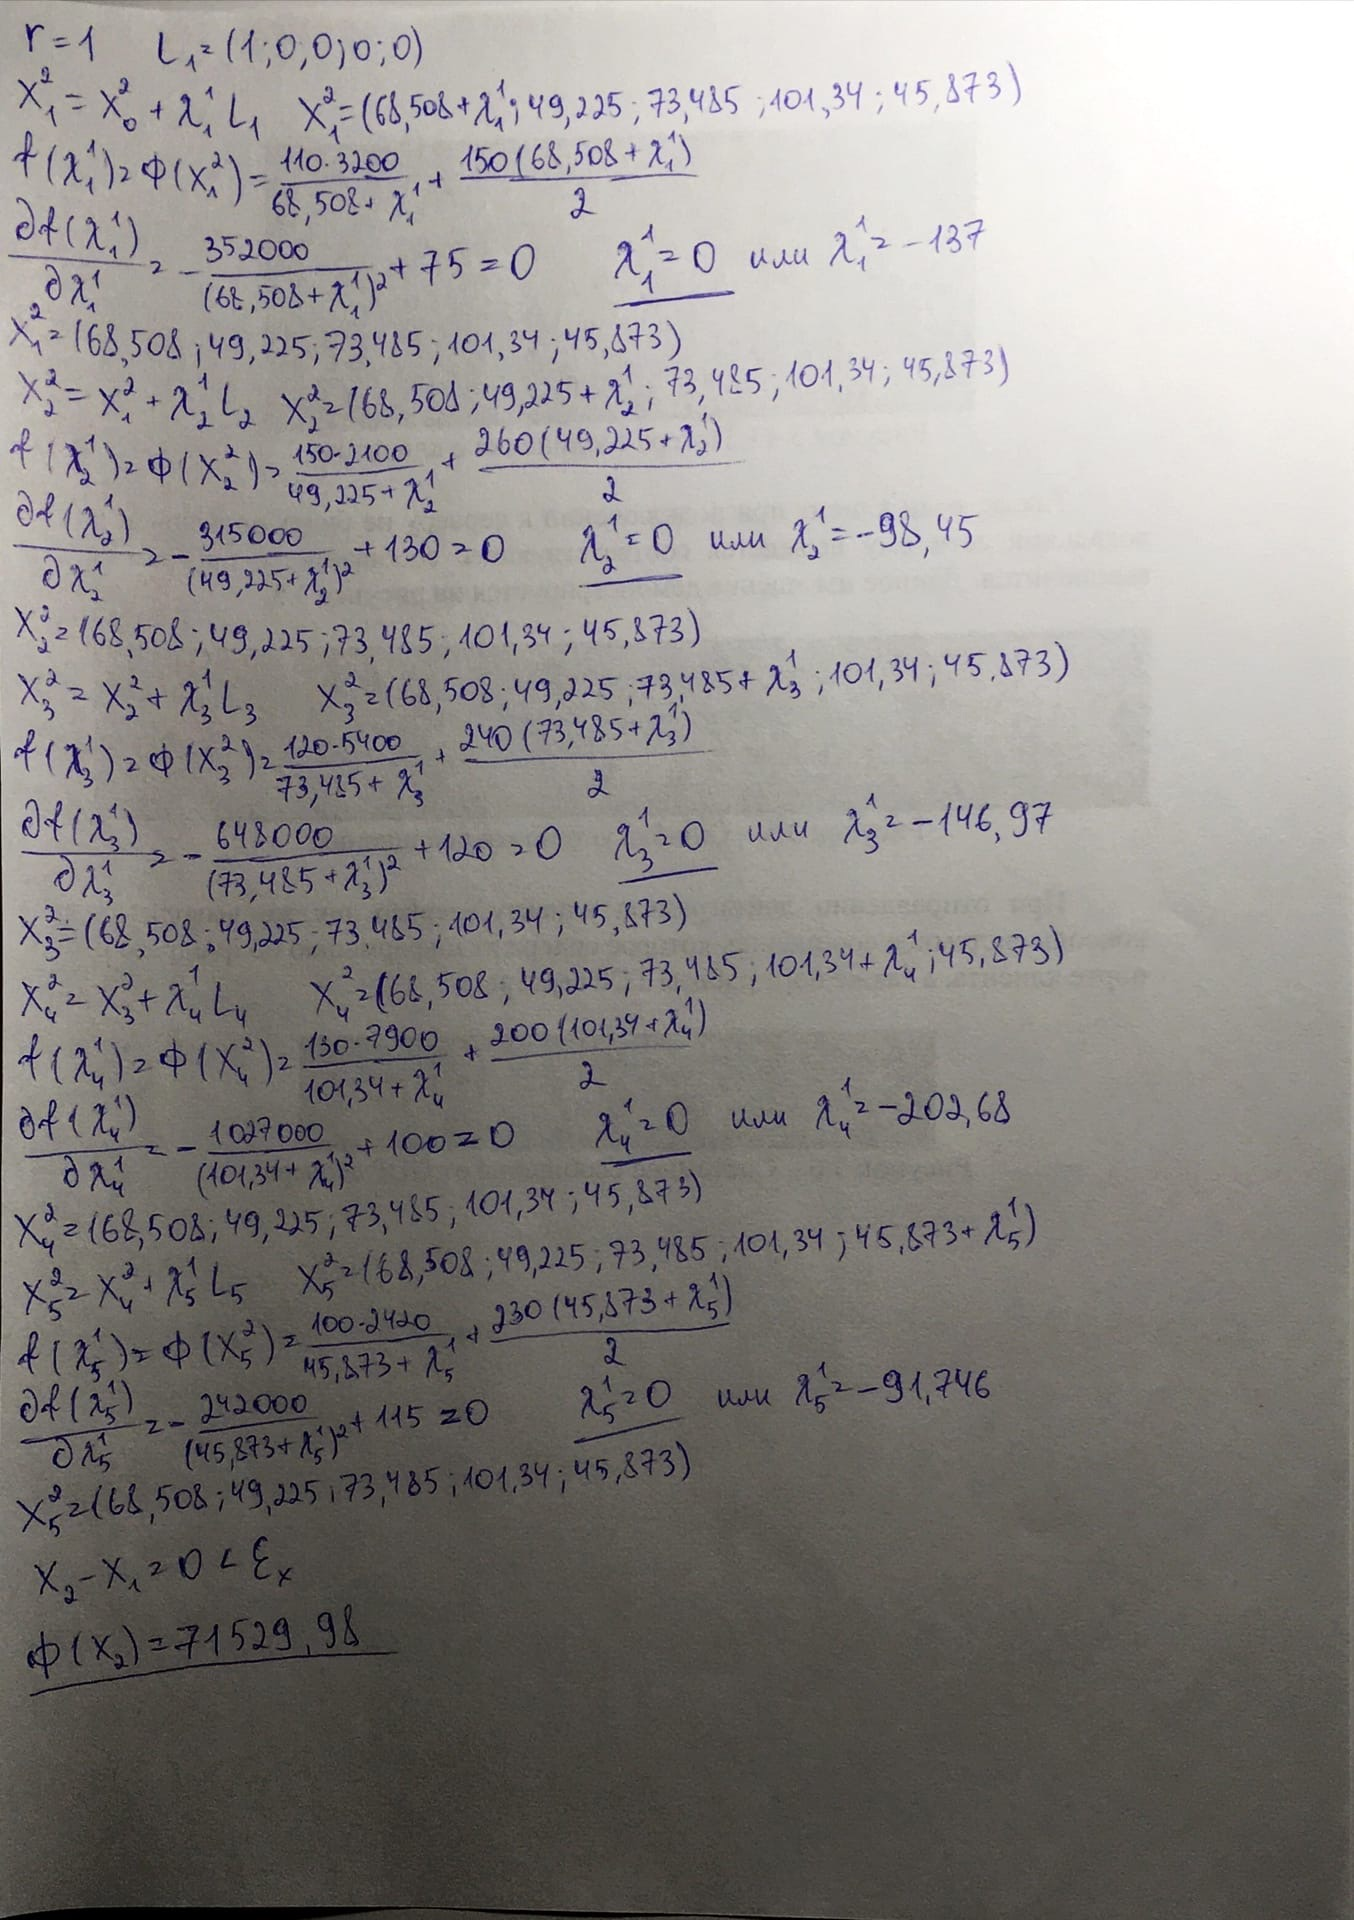 r = 1 L₁ = (1; 0; 0; 0; 0)
X₁² = X₀² + λ₁¹ L₁ X₁² = (68,508 + λ₁¹; 49,225; 73,485; 101,34; 45,873)
f(λ₁¹) = Φ(X₁²) = 110·3200/(68,508 + λ₁¹) + 150(68,508 + λ₁¹)/2
∂f(λ₁¹)/∂λ₁¹ = - 352000/(68,508 + λ₁¹)² + 75 = 0 λ₁¹ = 0 или λ₁¹ = -137
X₁² = (68,508; 49,225; 73,485; 101,34; 45,873)
X₂² = X₁² + λ₂¹ L₂ X₂² = (68,508; 49,225 + λ₂¹; 73,485; 101,34; 45,873)
f(λ₂¹) = Φ(X₂²) = 150·2100/(49,225 + λ₂¹) + 260(49,225 + λ₂¹)/2
∂f(λ₂¹)/∂λ₂¹ = - 315000/(49,225 + λ₂¹)² + 130 = 0 λ₂¹ = 0 или λ₂¹ = -98,45
X₂² = (68,508; 49,225; 73,485; 101,34; 45,873)
X₃² = X₂² + λ₃¹ L₃ X₃² = (68,508; 49,225; 73,485 + λ₃¹; 101,34; 45,873)
f(λ₃¹) = Φ(X₃²) = 120·5400/(73,485 + λ₃¹) + 240(73,485 + λ₃¹)/2
∂f(λ₃¹)/∂λ₃¹ = - 648000/(73,485 + λ₃¹)² + 120 = 0 λ₃¹ = 0 или λ₃¹ = -146,97
X₃² = (68,508; 49,225; 73,485; 101,34; 45,873)
X₄² = X₃² + λ₄¹ L₄ X₄² = (68,508; 49,225; 73,485; 101,34 + λ₄¹; 45,873)
f(λ₄¹) = Φ(X₄²) = 130·7900/(101,34 + λ₄¹) + 200(101,34 + λ₄¹)/2
∂f(λ₄¹)/∂λ₄¹ = - 1027000/(101,34 + λ₄¹)² + 100 = 0 λ₄¹ = 0 или λ₄¹ = -202,68
X₄² = (68,508; 49,225; 73,485; 101,34; 45,873)
X₅² = X₄² + λ₅¹ L₅ X₅² = (68,508; 49,225; 73,485; 101,34; 45,873 + λ₅¹)
f(λ₅¹) = Φ(X₅²) = 100·2420/(45,873 + λ₅¹) + 230(45,873 + λ₅¹)/2
∂f(λ₅¹)/∂λ₅¹ = - 242000/(45,873 + λ₅¹)² + 115 = 0 λ₅¹ = 0 или λ₅¹ = -91,746
X₅² = (68,508; 49,225; 73,485; 101,34; 45,873)
X₂ - X₁ = 0 < Ɛₓ
Φ(X₂) = 71529,98